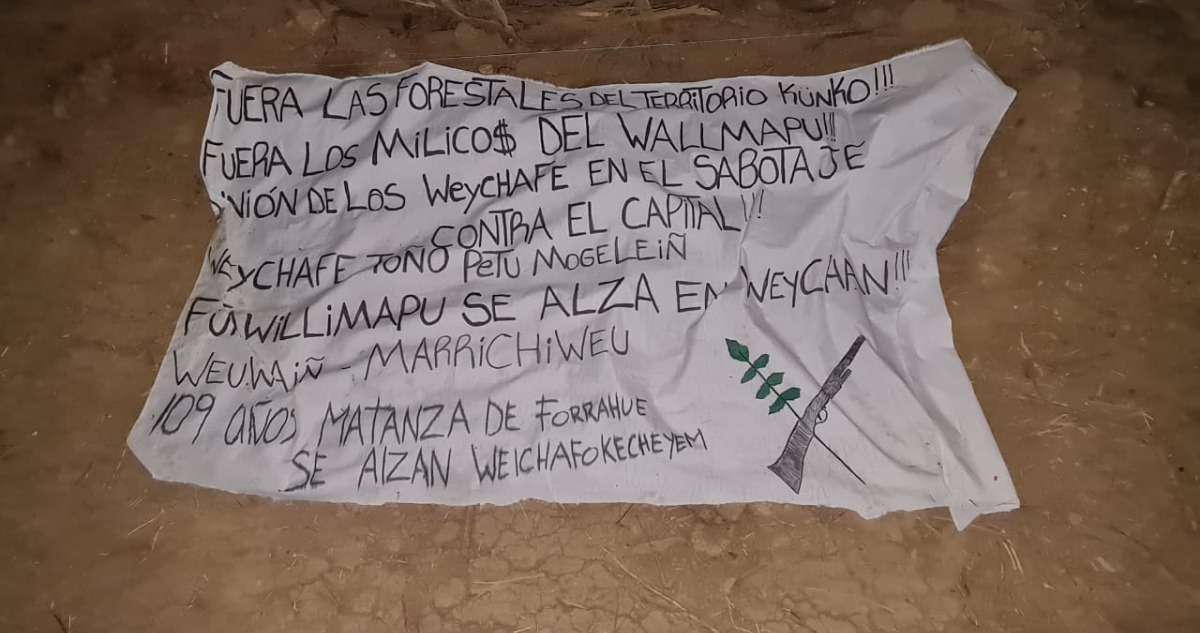 FUERA LAS FORESTALES DEL TERRITORIO KÜNKO!!!
FUERA LOS MiLiCO$ DEL WALLMAPU!!!
DE LOS WeyCHAFE EN EL SABOTAJE
CONTRA EL CAPITAL!!!
WEYCHAFE TOÑO PeTU MOGELEiÑ
WiLLiMAPU SE ALZA EN WEYCHAN!!!
WEUWAiÑ - MARRiCHiWEU
109 AÑOS MATANZA DE FORRAHUE
SE AlZAN WEICHAFOKECHEYEM